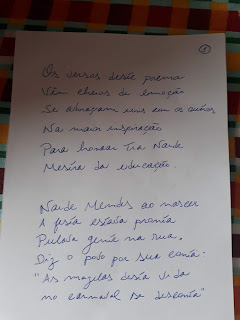 1
Os versos deste poema
Vêm cheios de emoção
Se abraçam uns com os outros
Na maior inspiração
Para honrar Tia Naide
Mestra da educação.
Naide Mendes ao nascer
A festa estava pronta
Pulava gente na rua.
Diz o povo por sua conta:
"As mazelas desta vida
no carnaval se desconta"